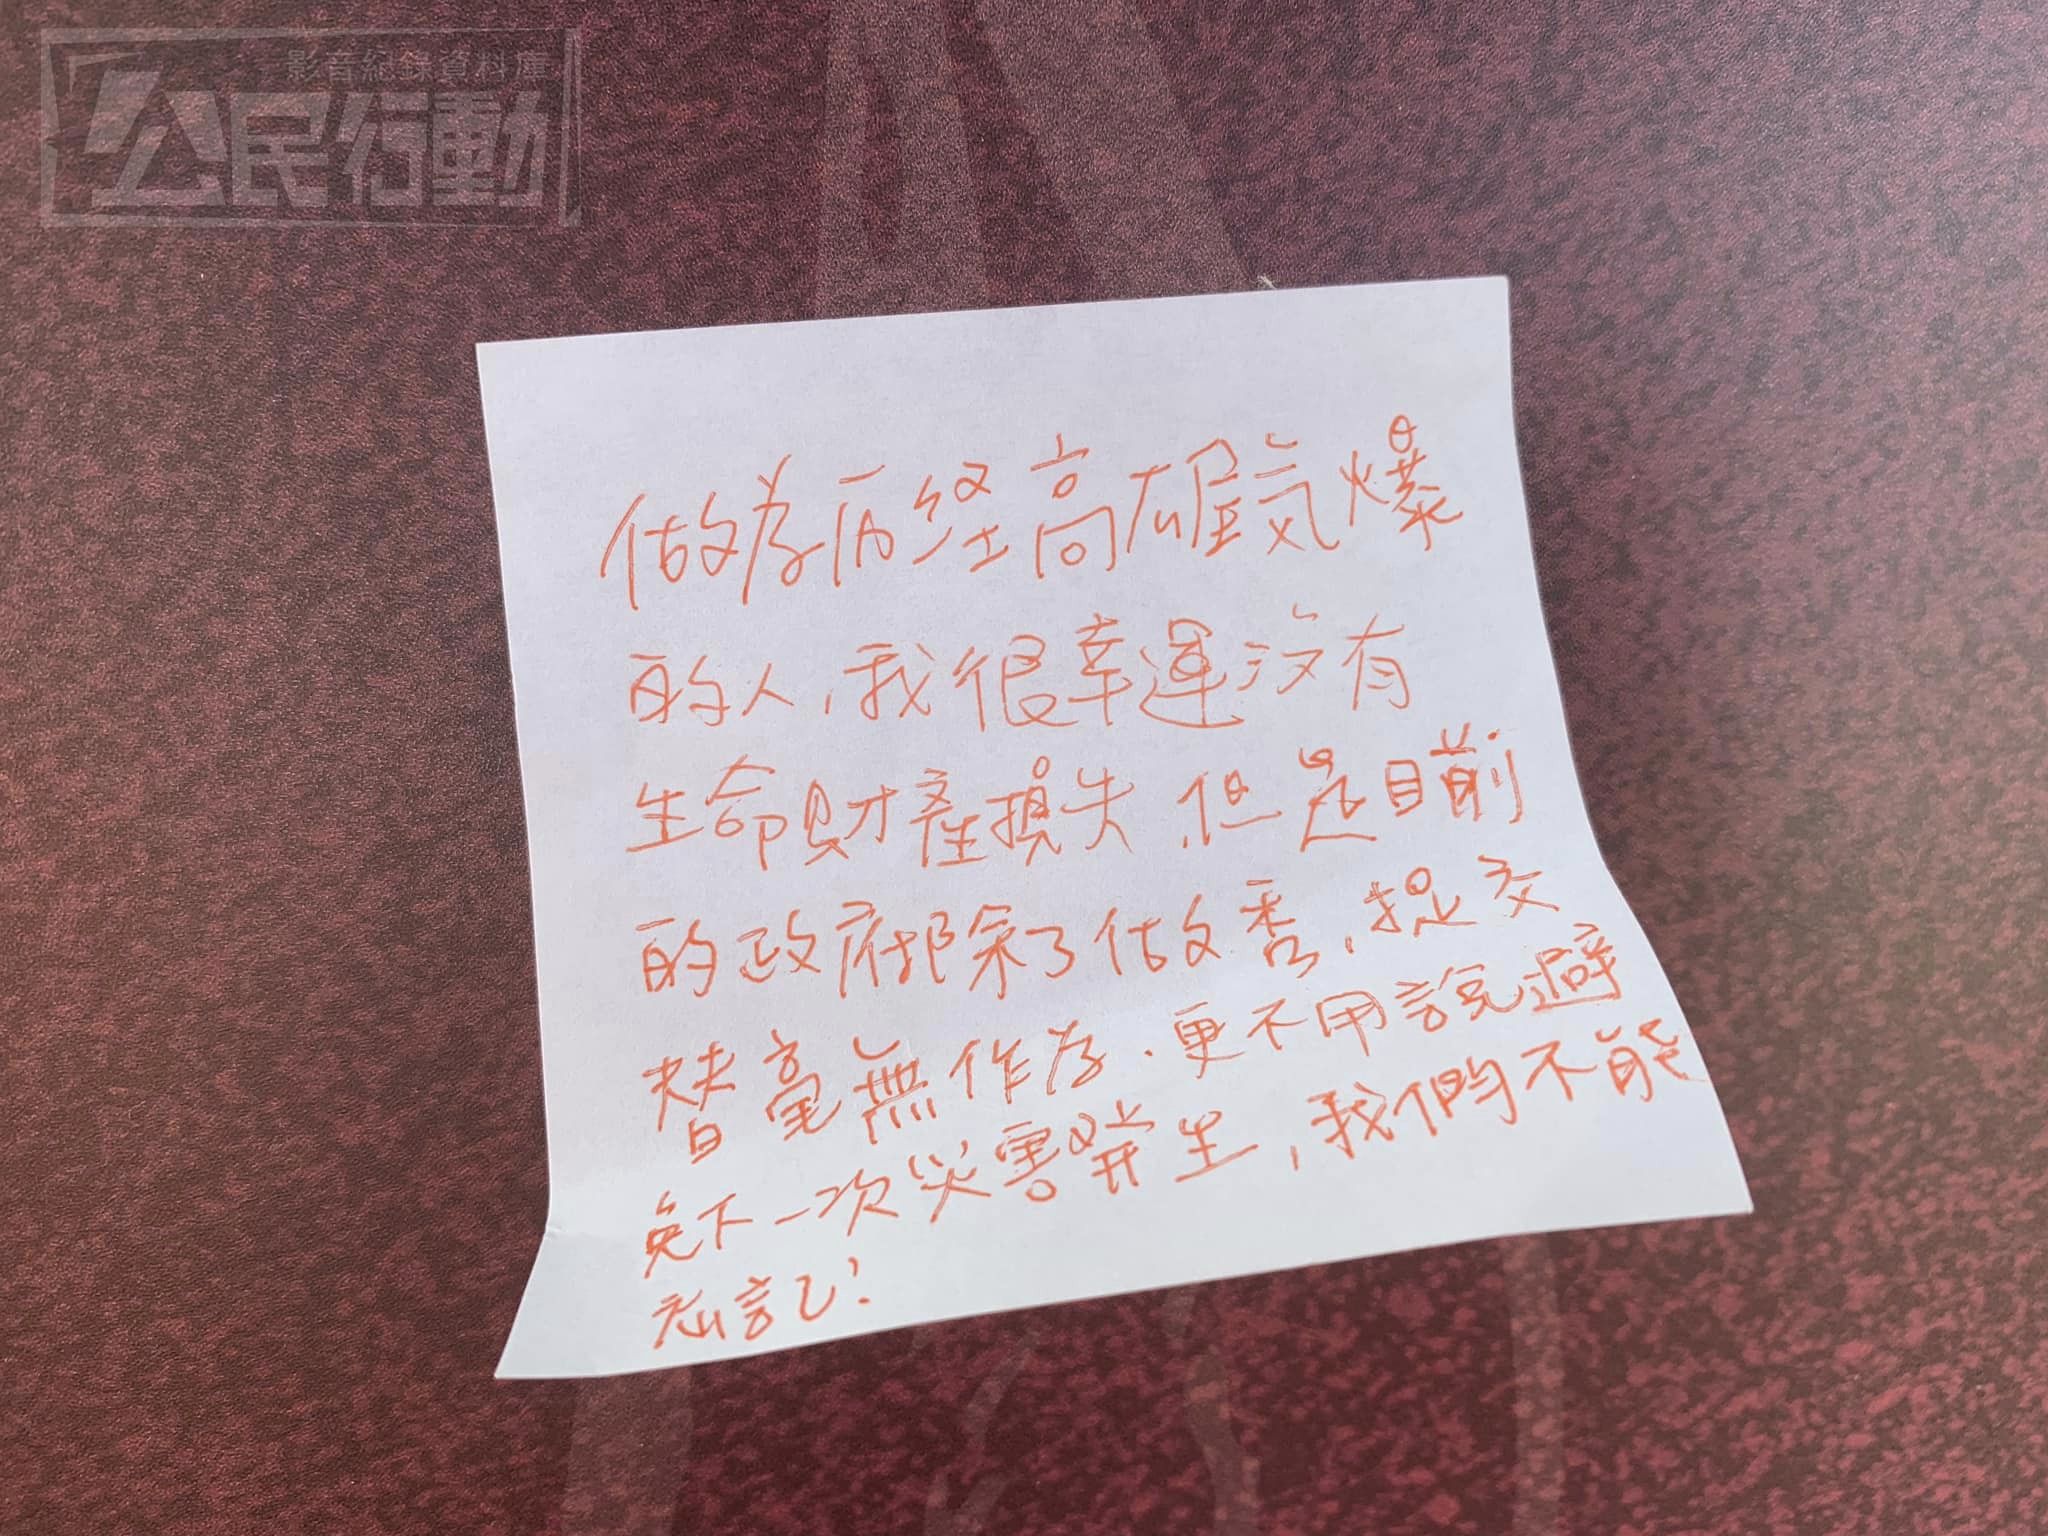 影音紀錄資料庫
公民行動
做為历经高雄氣爆
的人,我很幸運沒有
生命財產損失,但是目前
的政府除了做秀,提交
替毫無作為.更不用說避
免下一次災害發生,我們不能
忘記!